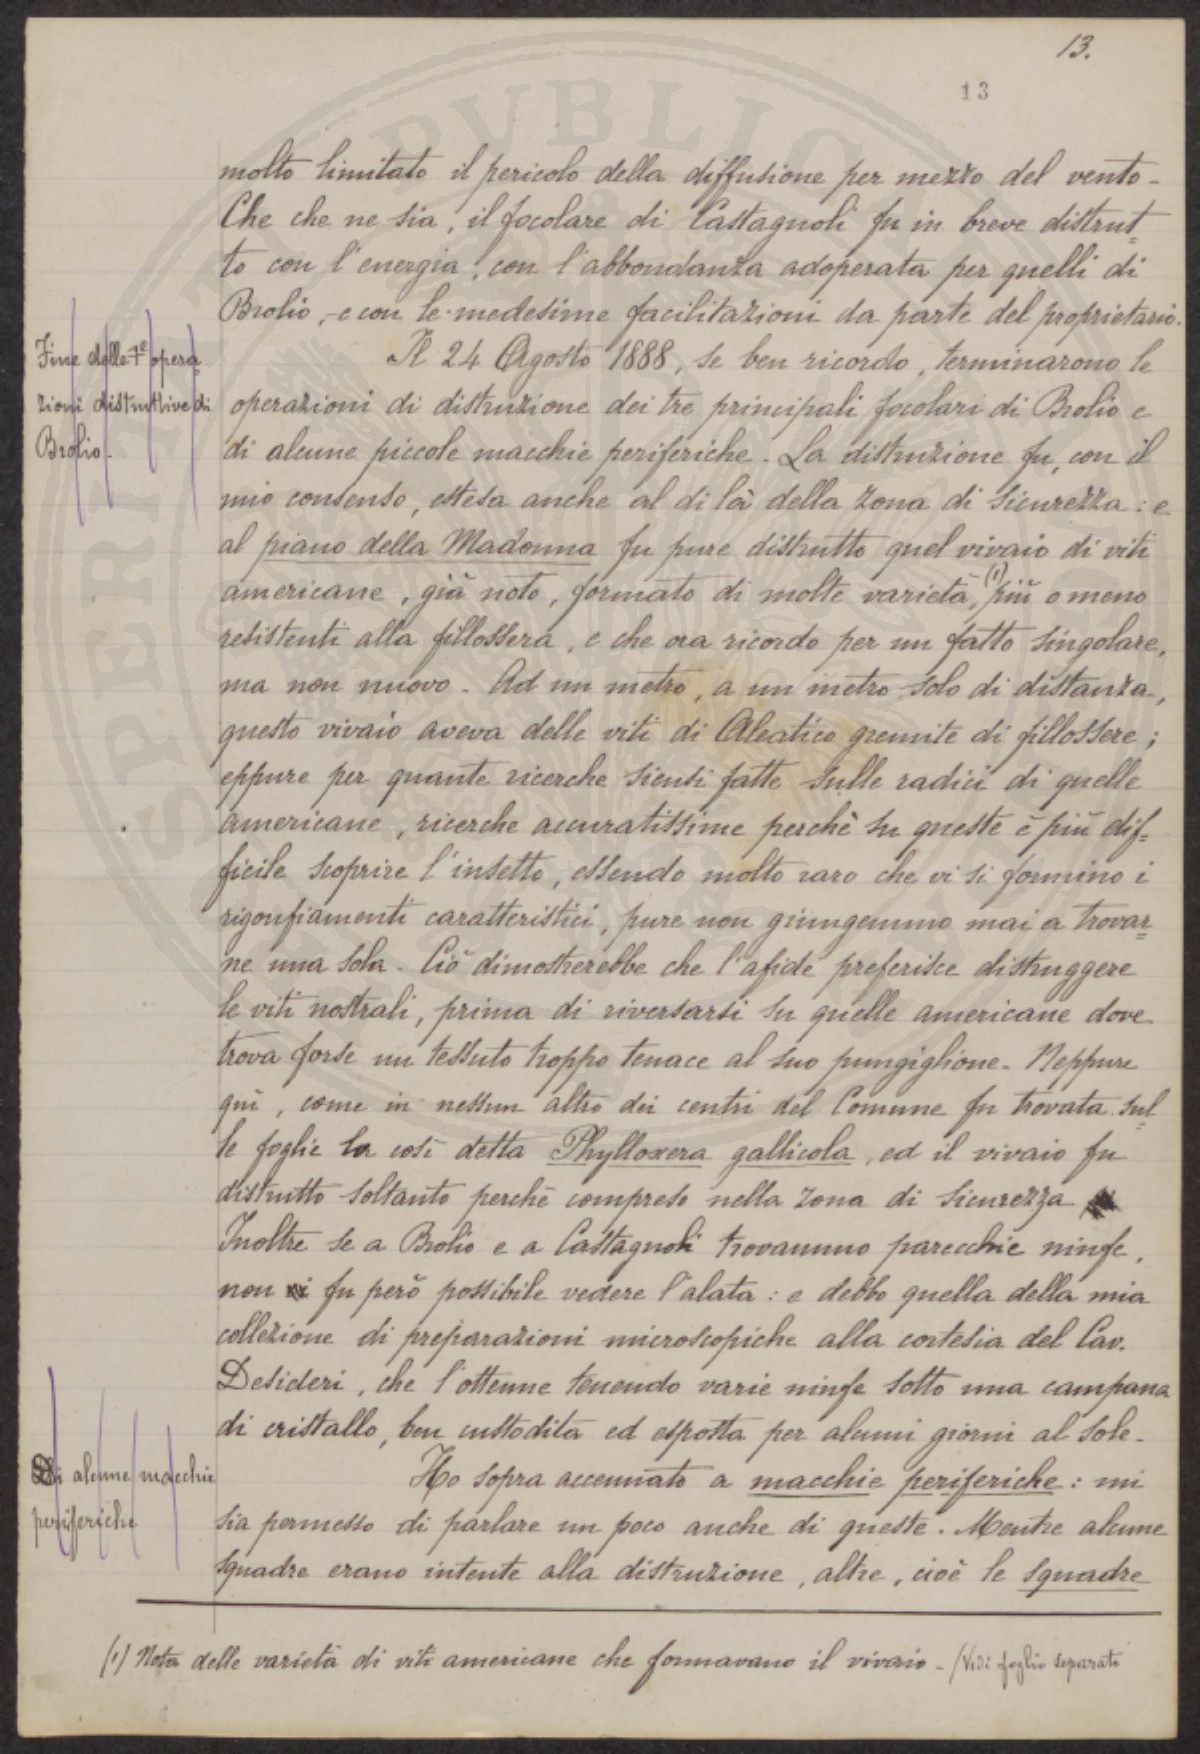 13.
13
molto limitato il pericolo della diffusione per mezzo del vento.
Che che ne sia, il focolare di Castagnoli fu in breve distrut-
to con l'energia, con l'abbondanza adoperata per quelli di
Brolio, e con le medesime facilitazioni da parte del proprietario.
Fine delle 1e opera
zioni distruttive di
Brolio.
Il 24 Agosto 1888, se ben ricordo, terminarono le
operazioni di distruzione dei tre principali focolari di Brolio e
di alcune piccole macchie periferiche. La distruzione fu, con il
mio consenso, estesa anche al di là della zona di sicurezza: e
al piano della Madonna fu pure distrutto quel vivaio di viti
americane, già noto, formato di molte varietà,(1) più o meno
resistenti alla fillossera, e che ora ricordo per un fatto singolare,
ma non nuovo. Ad un metro, a un metro solo di distanza,
questo vivaio aveva delle viti di Aleatico gremite di fillossere;
eppure per quante ricerche siensi fatte sulle radici di quelle
americane, ricerche accuratissime perchè su queste è più dif=
ficile scoprire l'insetto, essendo molto raro che vi si formino i
rigonfiamenti caratteristici, pure non giungemmo mai a trovar=
ne una sola. Ciò dimostrerebbe che l'afide preferisce distruggere
le viti nostrali, prima di riversarsi su quelle americane dove
trova forse un tessuto troppo tenace al suo pungiglione. Neppure
quì, come in nessun altro dei centri del Comune fu trovata sul=
le foglie la così detta Phylloxera gallicola, ed il vivaio fu
distrutto soltanto perchè compreso nella zona di sicurezza
Inoltre se a Brolio e a Castagnoli trovammo parecchie ninfe,
non fu però possibile vedere l'alata: e debbo quella della mia
collezione di preparazioni microscopiche alla cortesia del Cav.
Desideri, che l'ottenne tenendo varie ninfe sotto una campana
di cristallo, ben custodita ed esposta per alcuni giorni al sole.
Di alcune macchie
periferiche
Ho sopra accennato a macchie periferiche: mi
sia permesso di parlare un poco anche di queste. Mentre alcune
squadre erano intente alla distruzione, altre, cioè le squadre
(1) Nota delle varietà di viti americane che formavano il vivaio. (Vedi foglio separato